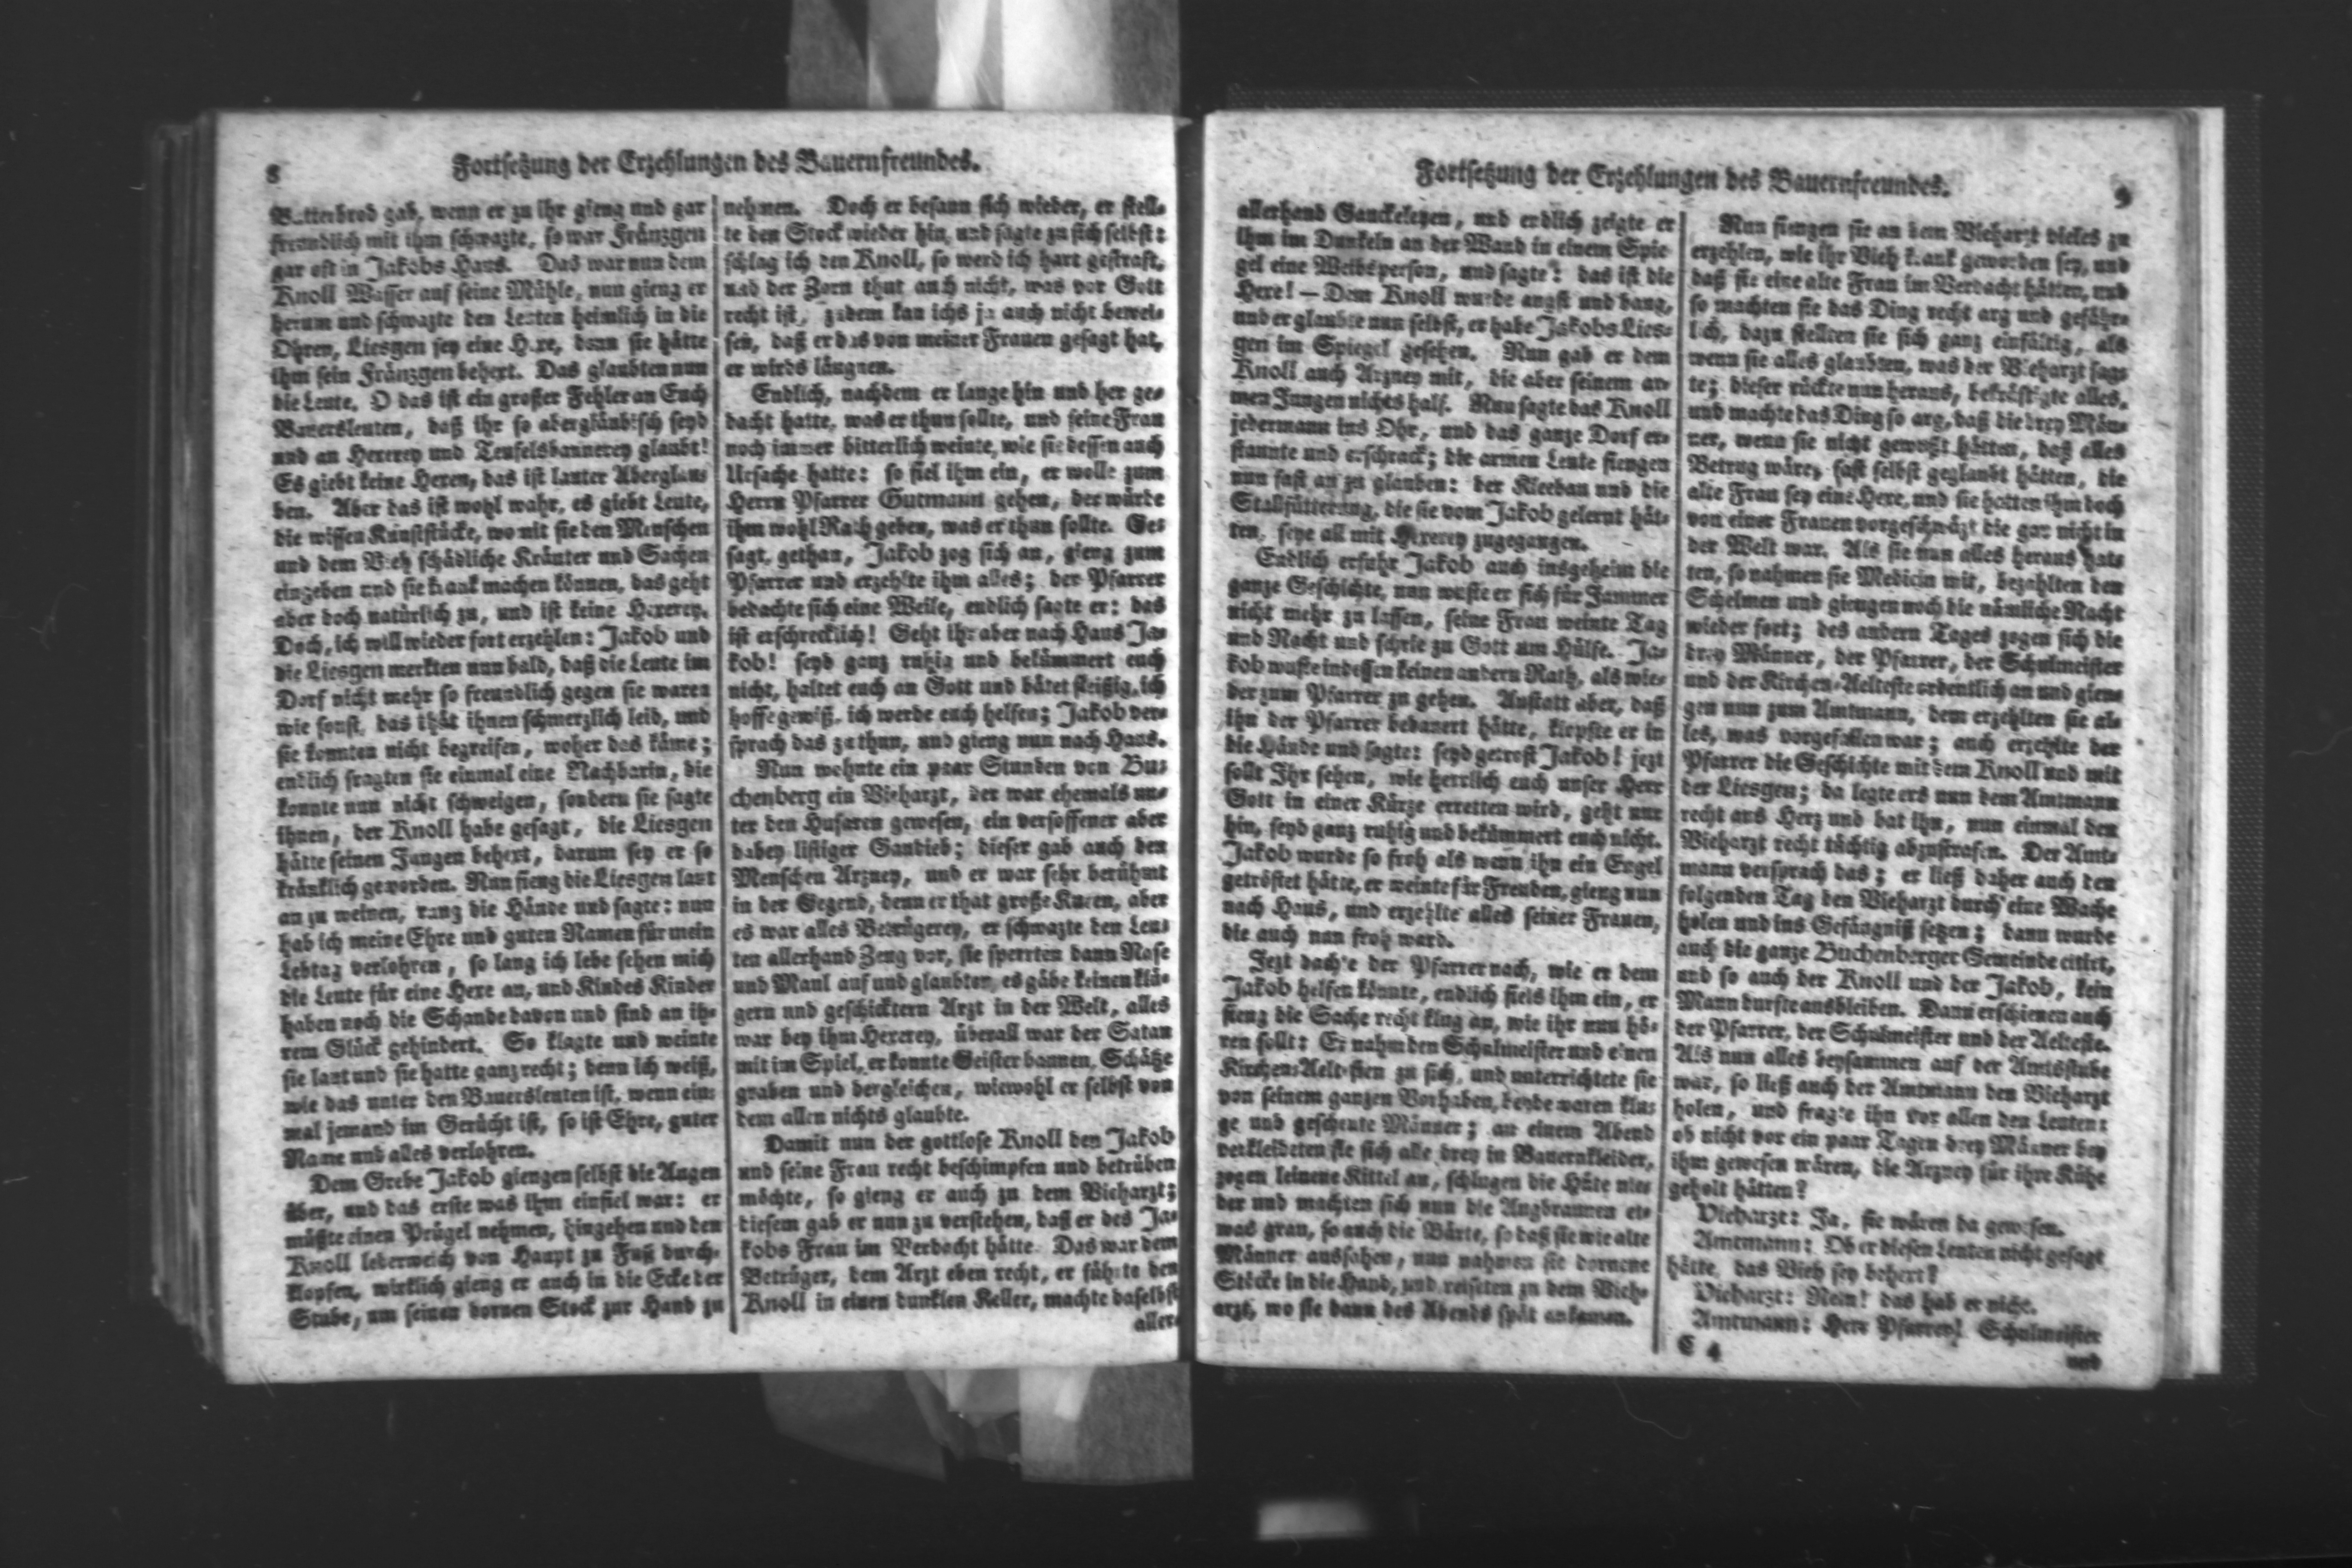 8
Fortsetzung der Erzehlungen des Bauernfreundes.
Butterbrod gab, wenn er zu ihr gieng und gar
freundlich mit ihm schwazte, so war Fränzgen
gar oft in Jakobs Haus. Das war nun dem
Knoll Wasser auf seine Mühle, nun gieng er
herum und schwazte den Leuten heimlich in die
Ohren, Liesgen sey eine Hexe, denn sie hätte
ihm sein Fränzgen behext. Das glaubten nun
die Leute. O das ist ein großer Fehler an Euch
Bauersleuten, daß ihr so abergläubisch seyd
und an Hexerey und Teufelsbannerey glaubt!
Es giebt keine Hexen, das ist lauter Aberglau-
ben. Aber das ist wohl wahr, es giebt Leute,
die wissen Kunststücke, wo mit sie den Menschen
und dem Vieh schädliche Kräuter und Sachen
eingeben und sie krank machen können, das geht
aber doch natürlich zu, und ist keine Hexerey.
Doch, ich will wieder fort erzehlen: Jakob und
die Liesgen merkten nun bald, daß die Leute im
Dorf nicht mehr so freundlich gegen sie waren
wie sonst, das thät ihnen schmerzlich leid, und
sie konnten nicht begreifen, woher das käme;
endlich fragten sie einmal eine Nachbarin, die
konnte nun nicht schweigen, sondern sie sagte
ihnen, der Knoll habe gesagt, die Liesgen
hätte seinen Jungen behext, darum sey er so
kränklich geworden. Nun fieng die Liesgen laut
an zu weinen, rang die Hände und sagte: nun
hab ich meine Ehre und guten Namen für mein
Lebtag verlohren, so lang ich lebe sehen mich
die Leute für eine Hexe an, und Kindes Kinder
haben noch die Schande davon und sind an ih-
rem Glück gehindert. So klagte und weinte
sie laut und sie hatte ganz recht; denn ich weiß,
wie das unter den Bauersleuten ist, wenn ein-
mal jemand im Gerücht ist, so ist Ehre, guter
Name und alles verlohren.
Dem Grebe Jakob giengen selbst die Augen
über, und das erste was ihm einfiel war: er
müßte einen Prügel nehmen, hingehen und den
Knoll lederweich von Haupt zu Fuß durch-
klopfen, wirklich gieng er auch in die Ecke der
Stube, um seinen dornen Stock zur Hand zu
nehmen. Doch er besann sich wieder, er stell-
te den Stock wieder hin, und sagte zu sich selbst:
schlag ich den Knoll, so werd ich hart gestraft,
und der Zorn thut auch nicht, was vor Gott
recht ist, zudem kan ichs ja auch nicht bewei-
sen, daß er das von meiner Frauen gesagt hat,
er wirds läugnen.
Endlich, nachdem er lange hin und her ge-
dacht hatte, was er thun sollte, und seine Frau
noch immer bitterlich weinte, wie sie dessen auch
Ursache hatte: so fiel ihm ein, er wolle zum
Herrn Pfarrer Gutmann gehen, der würde
ihm wohl Rath geben, was er thun sollte. Ge-
sagt, gethan, Jakob zog sich an, gieng zum
Pfarrer und erzehlte ihm alles; der Pfarrer
bedachte sich eine Weile, endlich sagte er: das
ist erschrecklich! Geht ihr aber nach Haus Ja-
kob! seyd ganz ruhig und bekümmert euch
nicht, haltet euch an Gott und bätet fleißig, ich
hoffe gewiß, ich werde euch helfen; Jakob ver-
sprach das zu thun, und gieng nun nach Haus.
Nun wohnte ein paar Stunden von Bu-
chenberg ein Vieharzt, der war ehemals un-
ter den Husaren gewesen, ein versoffener aber
dabey listiger Gaudieb; dieser gab auch den
Menschen Arzney, und er war sehr berühmt
in der Gegend, denn er that große Kuren, aber
es war alles Betrügerey, er schwazte den Leu-
ten allerhand Zeug vor, sie sperrten dann Nase
und Maul auf und glaubten, es gäbe keinen klü-
gern und geschicktern Arzt in der Welt, alles
war bey ihm Hexerey, überall war der Satan
mit im Spiel, er konnte Geister bannen, Schätze
graben und dergleichen, wiewohl er selbst von
dem allen nichts glaubte.
Damit nun der gottlose Knoll den Jakob
und seine Frau recht beschimpfen und betrüben
möchte, so gieng er auch zu dem Vieharzt;
diesem gab er nun zu verstehen, daß er des Ja-
kobs Frau im Verdacht hätte. Das war dem
Betrüger, dem Arzt eben recht, er führte den
Knoll in einen dunklen Keller, machte daselbst
aller-
Fortsetzung der Erzehlungen des Bauernfreundes.
9
allerhand Gauckeleyen, und endlich zeigte er
ihm im Dunkeln an der Wand in einem Spie-
gel eine Weibsperson, und sagte: das ist die
Hexe! — Dem Knoll wurde angst und bang,
und er glaubte nun selbst, er habe Jakobs Lies-
gen im Spiegel gesehen. Nun gab er dem
Knoll auch Arzney mit, die aber seinem ar-
men Jungen nichts half. Nun sagte das Knoll
jedermann ins Ohr, und das ganze Dorf er-
staunte und erschrack; die armen Leute fiengen
nun fast an zu glauben: der Kleebau und die
Stallfütterung, die sie vom Jakob gelernt hät-
ten, seye all mit Hexerey zugegangen.
Endlich erfuhr Jakob auch insgeheim die
ganze Geschichte, nun wuste er sich für Jammer
nicht mehr zu lassen, seine Frau weinte Tag
und Nacht und schrie zu Gott um Hülfe. Ja-
kob wuste indessen keinen andern Rath, als wie-
der zum Pfarrer zu gehen. Anstatt aber, daß
ihn der Pfarrer bedauert hätte, klopfte er in
die Hände und sagte: seyd getrost Jakob! jezt
sollt Ihr sehen, wie herrlich euch unser Herr
Gott in einer Kürze erretten wird, geht nur
hin, seyd ganz ruhig und bekümmert euch nicht.
Jakob wurde so froh als wenn ihn ein Engel
getröstet hätte, er weinte für Freuden, gieng nun
nach Haus, und erzehlte alles seiner Frauen,
die auch nun froh ward.
Jezt dachte der Pfarrer nach, wie er dem
Jakob helfen könnte, endlich fiels ihm ein, er
fieng die Sache recht klug an, wie ihr nun hö-
ren sollt: Er nahm den Schulmeister und einen
Kirchen-Aeltesten zu sich, und unterrichtete sie
von seinem ganzen Vorhaben, beyde waren klu-
ge und gescheute Männer; an einem Abend
verkleideten sie sich alle drey in Bauernkleider,
zogen leinene Kittel an, schlugen die Hüte nie-
der und machten sich nun die Augbraunen et-
was grau, so auch die Bärte, so daß sie wie alte
Männer aussahen, nun nahmen sie dornene
Stöcke in die Hand, und reiseten zu dem Vieh-
arzt, wo sie dann des Abends spät ankamen.
Nun fiengen sie an dem Vieharzt vieles zu
erzehlen, wie ihr Vieh krank geworden sey, und
daß sie eine alte Frau im Verdacht hätten, und
so machten sie das Ding recht arg und gefähr-
lich, dazu stellten sie sich ganz einfältig, als
wenn sie alles glaubten, was der Vieharzt sag-
te; dieser rückte nun heraus, bekräftigte alles,
und machte das Ding so arg, daß die drey Män-
ner, wenn sie nicht gewußt hätten, daß alles
Betrug wäre, fast selbst geglaubt hätten, die
alte Frau sey eine Hexe, und sie hatten ihm doch
von einer Frauen vorgeschwäzt die gar nicht in
der Welt war. Als sie nun alles heraus hat-
ten, so nahmen sie Medicin mit, bezahlten den
Schelmen und giengen noch die nämliche Nacht
wieder fort; des andern Tages zogen sich die
drey Männer, der Pfarrer, der Schulmeister
und der Kirchen-Aelteste ordentlich an und gien-
gen nun zum Amtmann, dem erzehlten sie al-
les, was vorgefallen war; auch erzehlte der
Pfarrer die Geschichte mit dem Knoll und mit
der Liesgen; da legte ers nun dem Amtmann
recht ans Herz und bat ihn, nun einmal den
Vieharzt recht tüchtig abzustrafen. Der Amt-
mann versprach das; er ließ daher auch den
folgenden Tag den Vieharzt durch eine Wache
holen und ins Gefängniß setzen; dann wurde
auch die ganze Buchenberger Gemeinde citirt,
und so auch der Knoll und der Jakob, kein
Mann durfte ausbleiben. Dann erschienen auch
der Pfarrer, der Schulmeister und der Aelteste.
Als nun alles beysammen auf der Amtsstube
war, so ließ auch der Amtmann den Vieharzt
holen, und fragte ihn vor allen den Leuten:
ob nicht vor ein paar Tagen drey Männer bey
ihm gewesen wären, die Arzney für ihre Kühe
geholt hätten?
Vieharzt: Ja, sie wären da gewesen.
Amtmann: Ob er diesen Leuten nicht gesagt
hätte, das Vieh sey behext?
Vieharzt: Nein! das hab er nicht.
Amtmann: Herr Pfarrer! Schulmeister
C 4
und